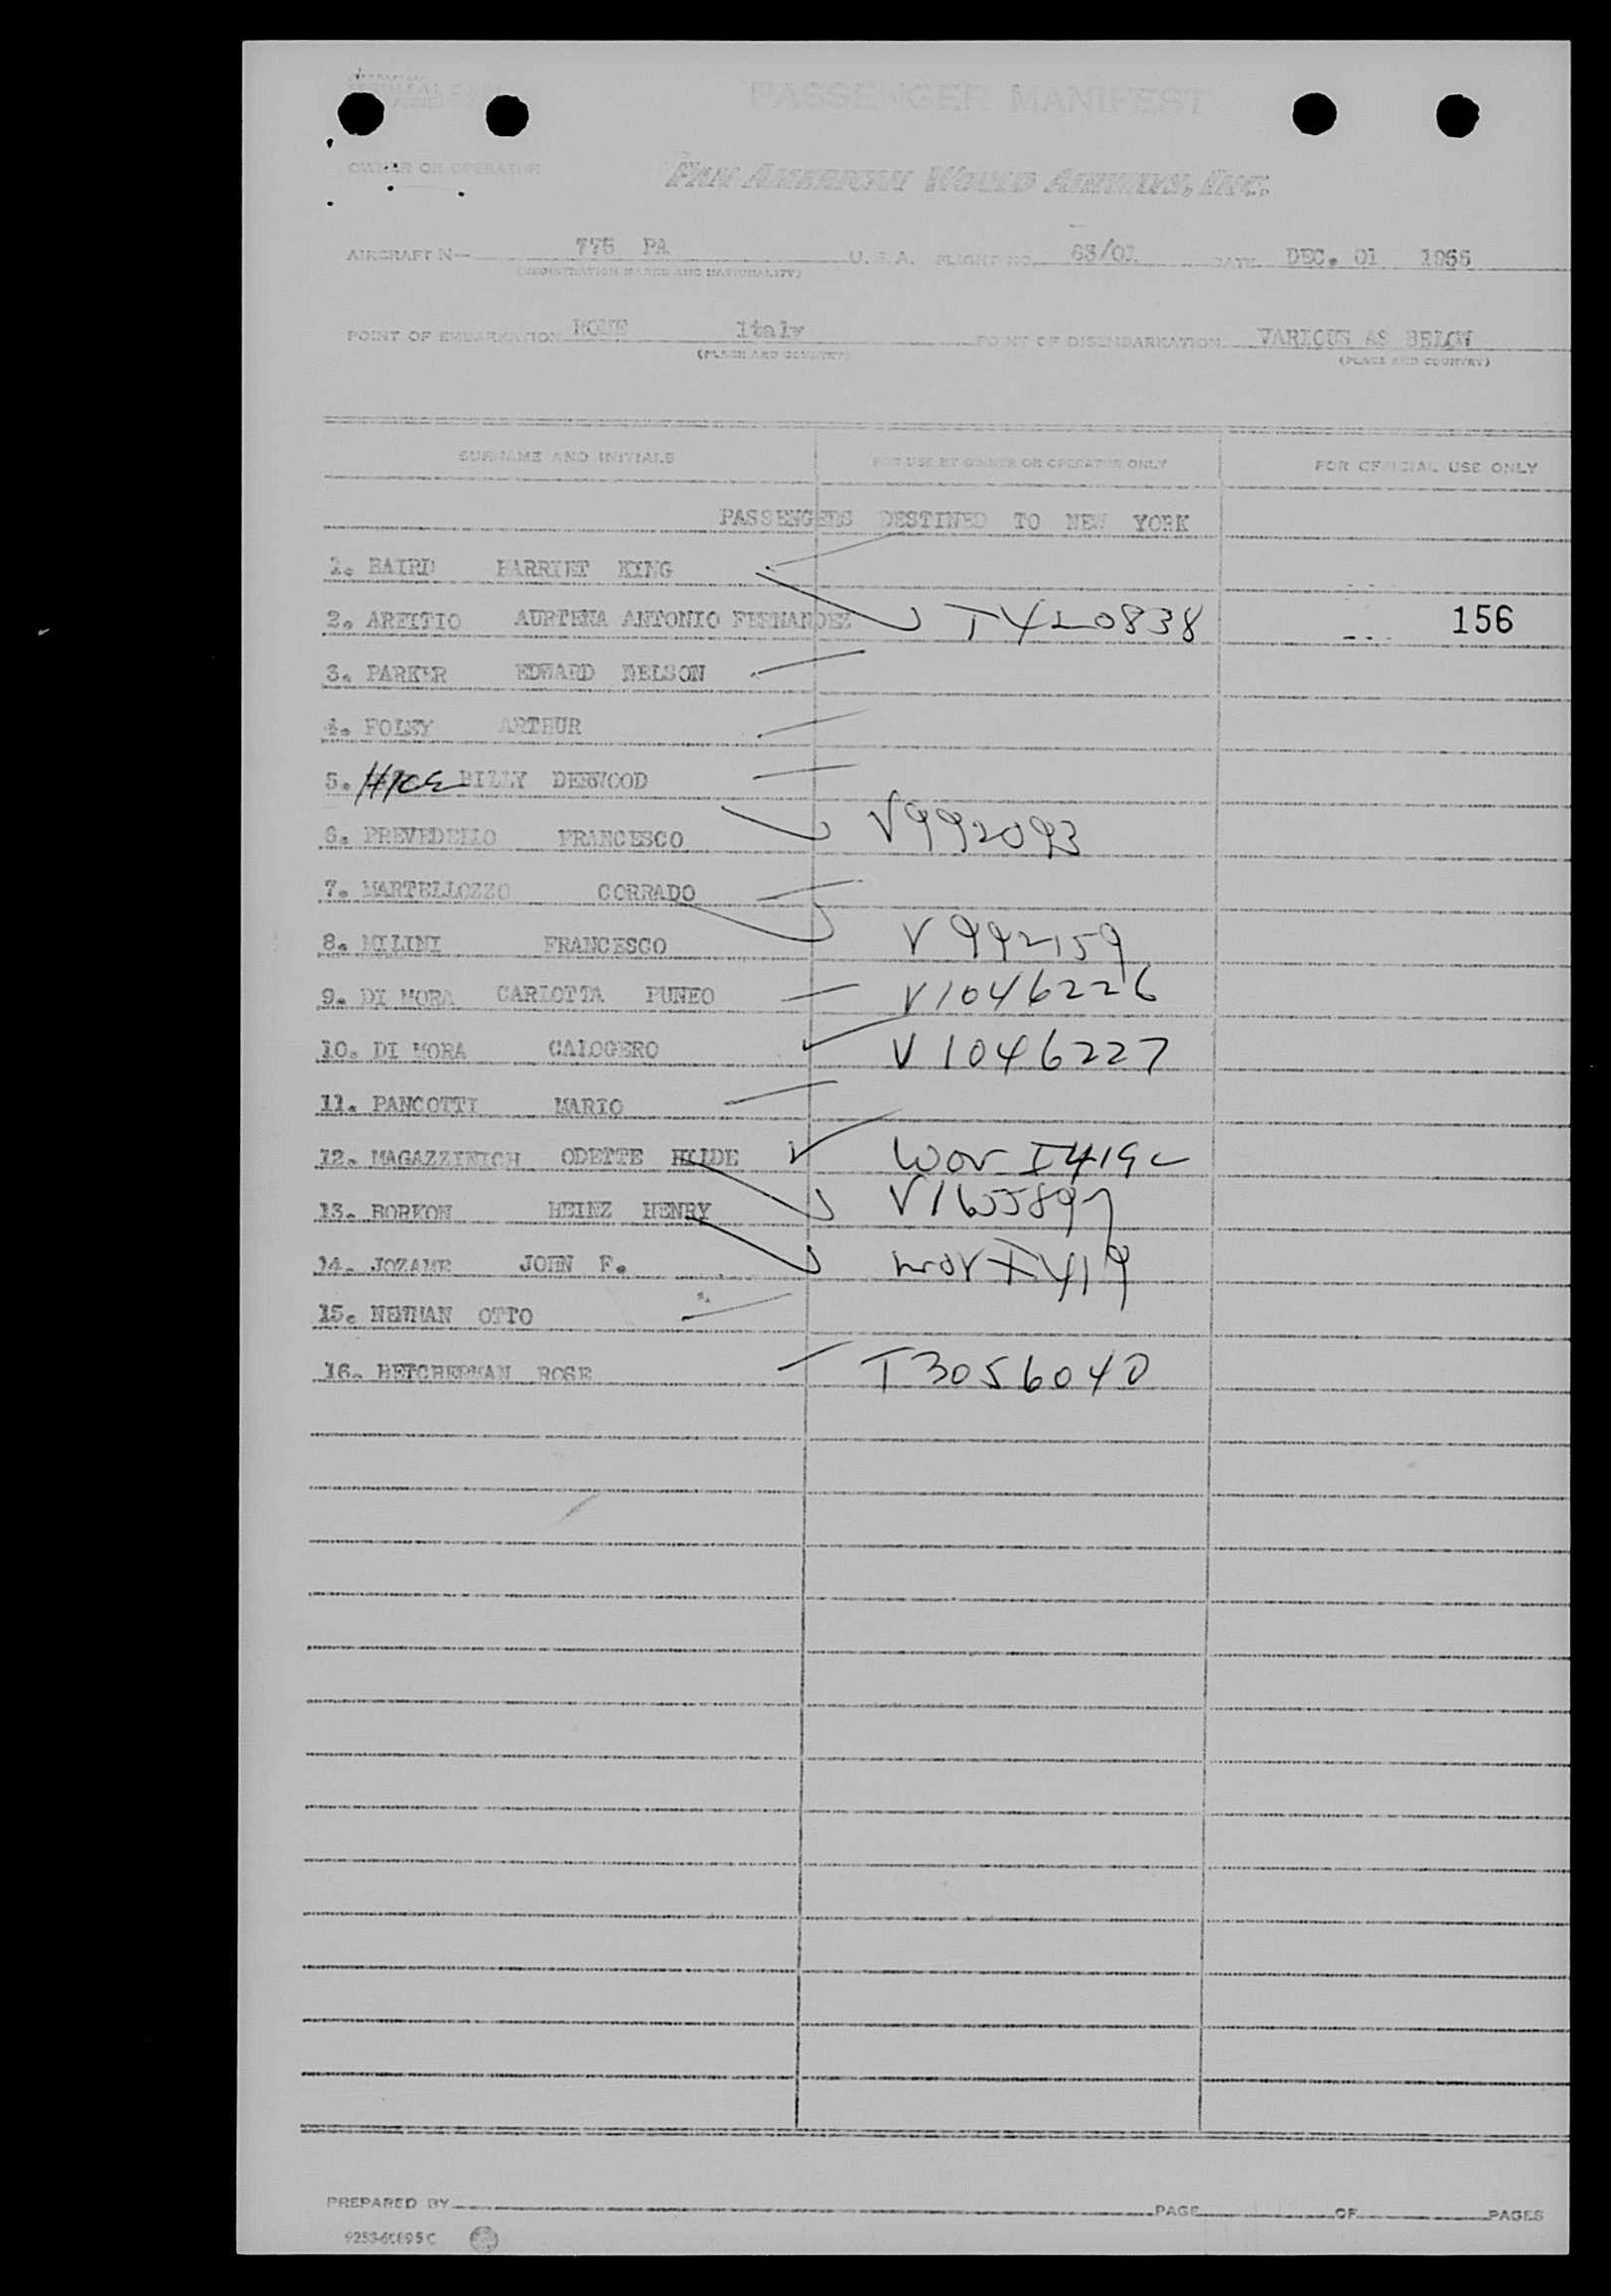 PASSENGER MANIFEST
OWNER OR OPERATOR
PAN AMERICAN WORLD AIRWAYS, INC.
AIRCRAFT N— 775 PA U.S.A. FLIGHT NO. 63/01 DATE DEC. 01 1955
(REGISTRATION MARKS AND NATIONALITY)
POINT OF EMBARKATION ROME Italy POINT OF DISEMBARKATION VARIOUS AS BELOW
(PLACE AND COUNTRY) (PLACE AND COUNTRY)
SURNAME AND INITIALS FOR USE BY OWNER OR OPERATOR ONLY FOR OFFICIAL USE ONLY
PASSENGERS DESTINED TO NEW YORK
1. BAIRD HARRIET KING
2. AREITIO AURTENA ANTONIO FERNANDEZ T420838 156
3. PARKER EDWARD NELSON
4. FOLEY ARTHUR
5. BILLY DERWOOD
6. PREVEDELLO FRANCESCO V992093
7. MARTELLOZZO CORRADO
8. MILINI FRANCESCO V992159
9. DI MORA CARLOTTA FUNEO V1046226
10. DI MORA CALOGERO V1046227
11. PANCOTTI MARIO
12. MAGAZZINICH ODETTE HILDE Wov I419
13. BORKON HEINZ HENRY V1655897
14. JOZAME JOHN F. I419
15. NEWMAN OTTO
16. BETCHERMAN ROSE T3056040
PREPARED BY PAGE OF PAGES